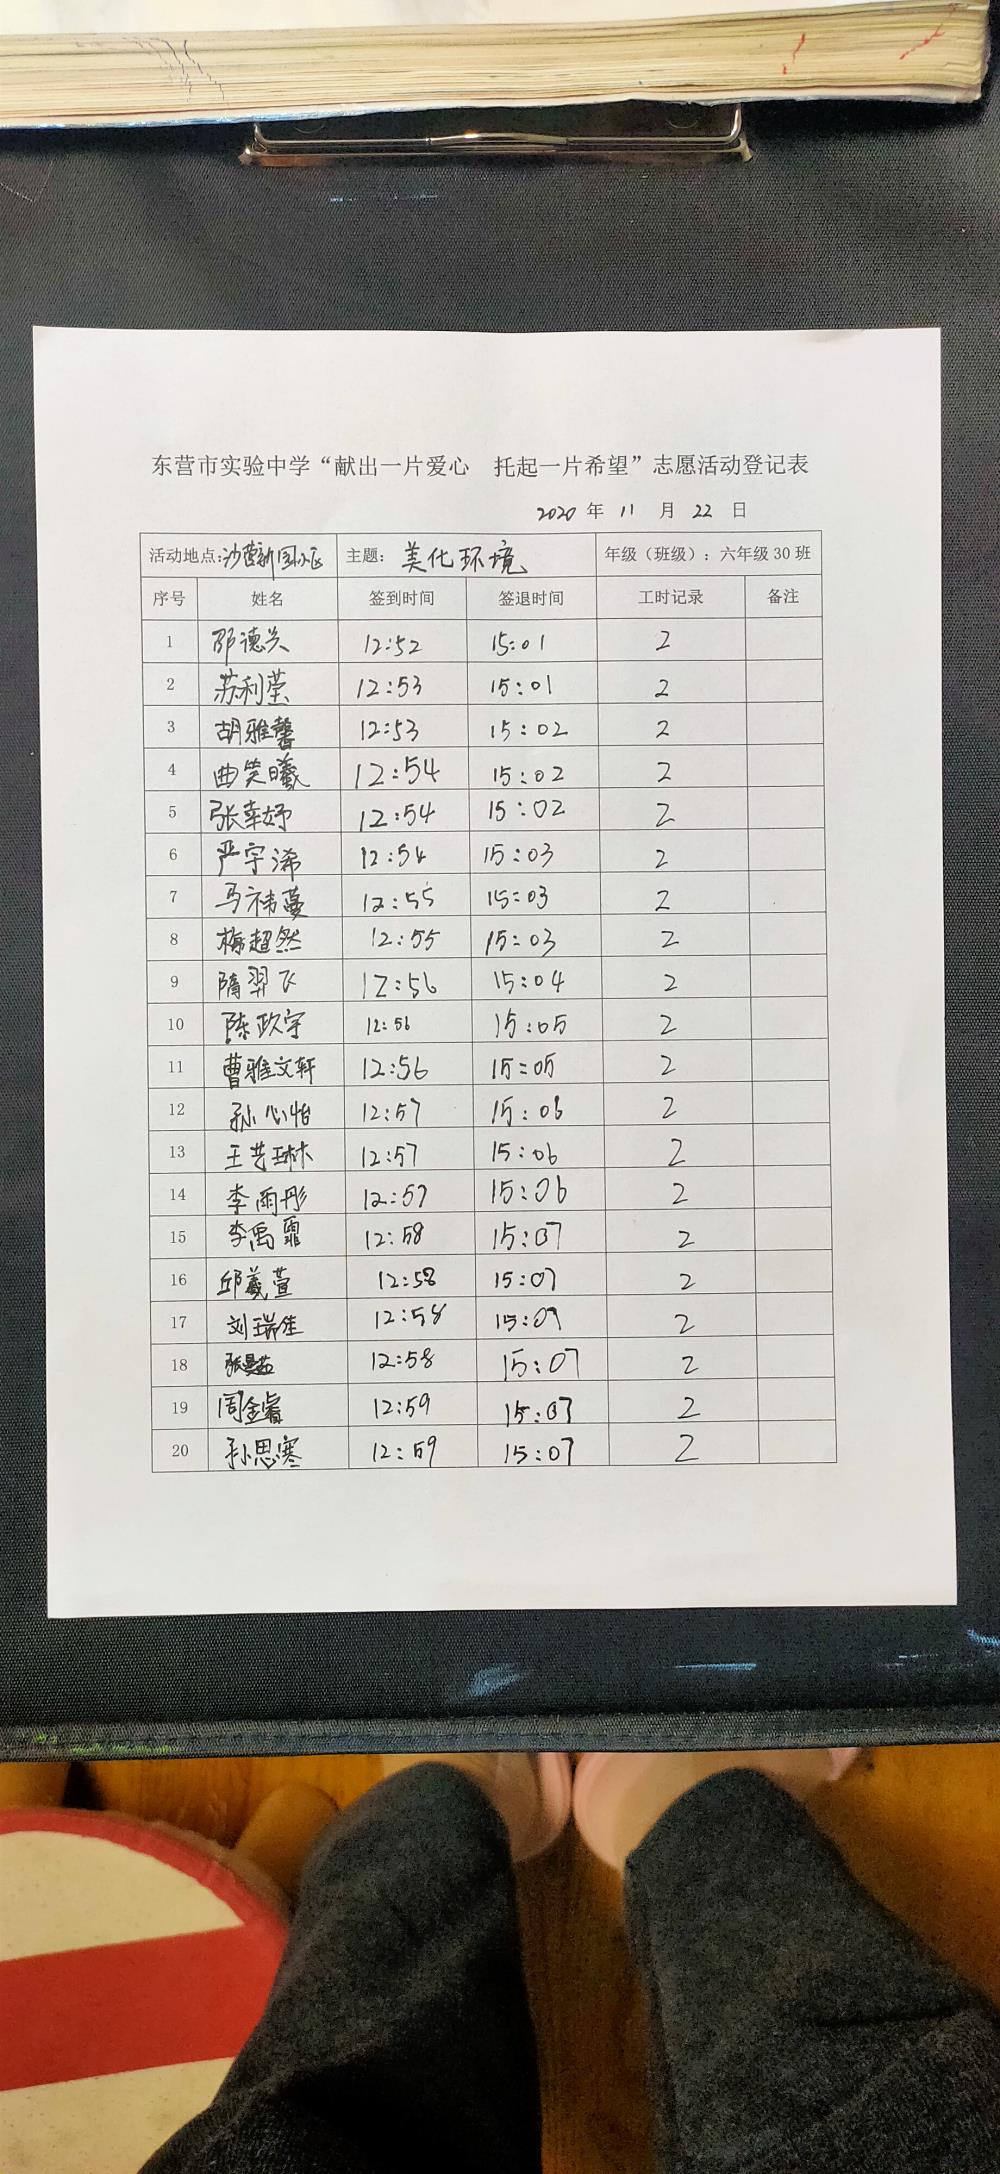 东营市实验中学“献出一片爱心 托起一片希望”志愿活动登记表
2020 年 11 月 22 日
活动地点:沙营新国小区 主题: 美化环境 年级（班级）: 六年级 30 班
序号 姓名 签到时间 签退时间 工时记录 备注
1 邵德兴 12:52 15:01 2
2 苏利莹 12:53 15:01 2
3 胡雅馨 12:53 15:02 2
4 曲笑曦 12:54 15:02 2
5 张幸妤 12:54 15:02 2
6 严宇浠 12:54 15:03 2
7 马祎蔓 12:55 15:03 2
8 梅超然 12:55 15:03 2
9 隋羿飞 12:56 15:04 2
10 陈政宇 12:56 15:05 2
11 曹雅文轩 12:56 15:05 2
12 孙心怡 12:57 15:06 2
13 王艺琳 12:57 15:06 2
14 李雨彤 12:57 15:06 2
15 李禹霏 12:58 15:07 2
16 邱羲萱 12:58 15:07 2
17 刘瑞佳 12:58 15:07 2
18 张曼茹 12:58 15:07 2
19 周金睿 12:59 15:07 2
20 孙思寒 12:59 15:07 2